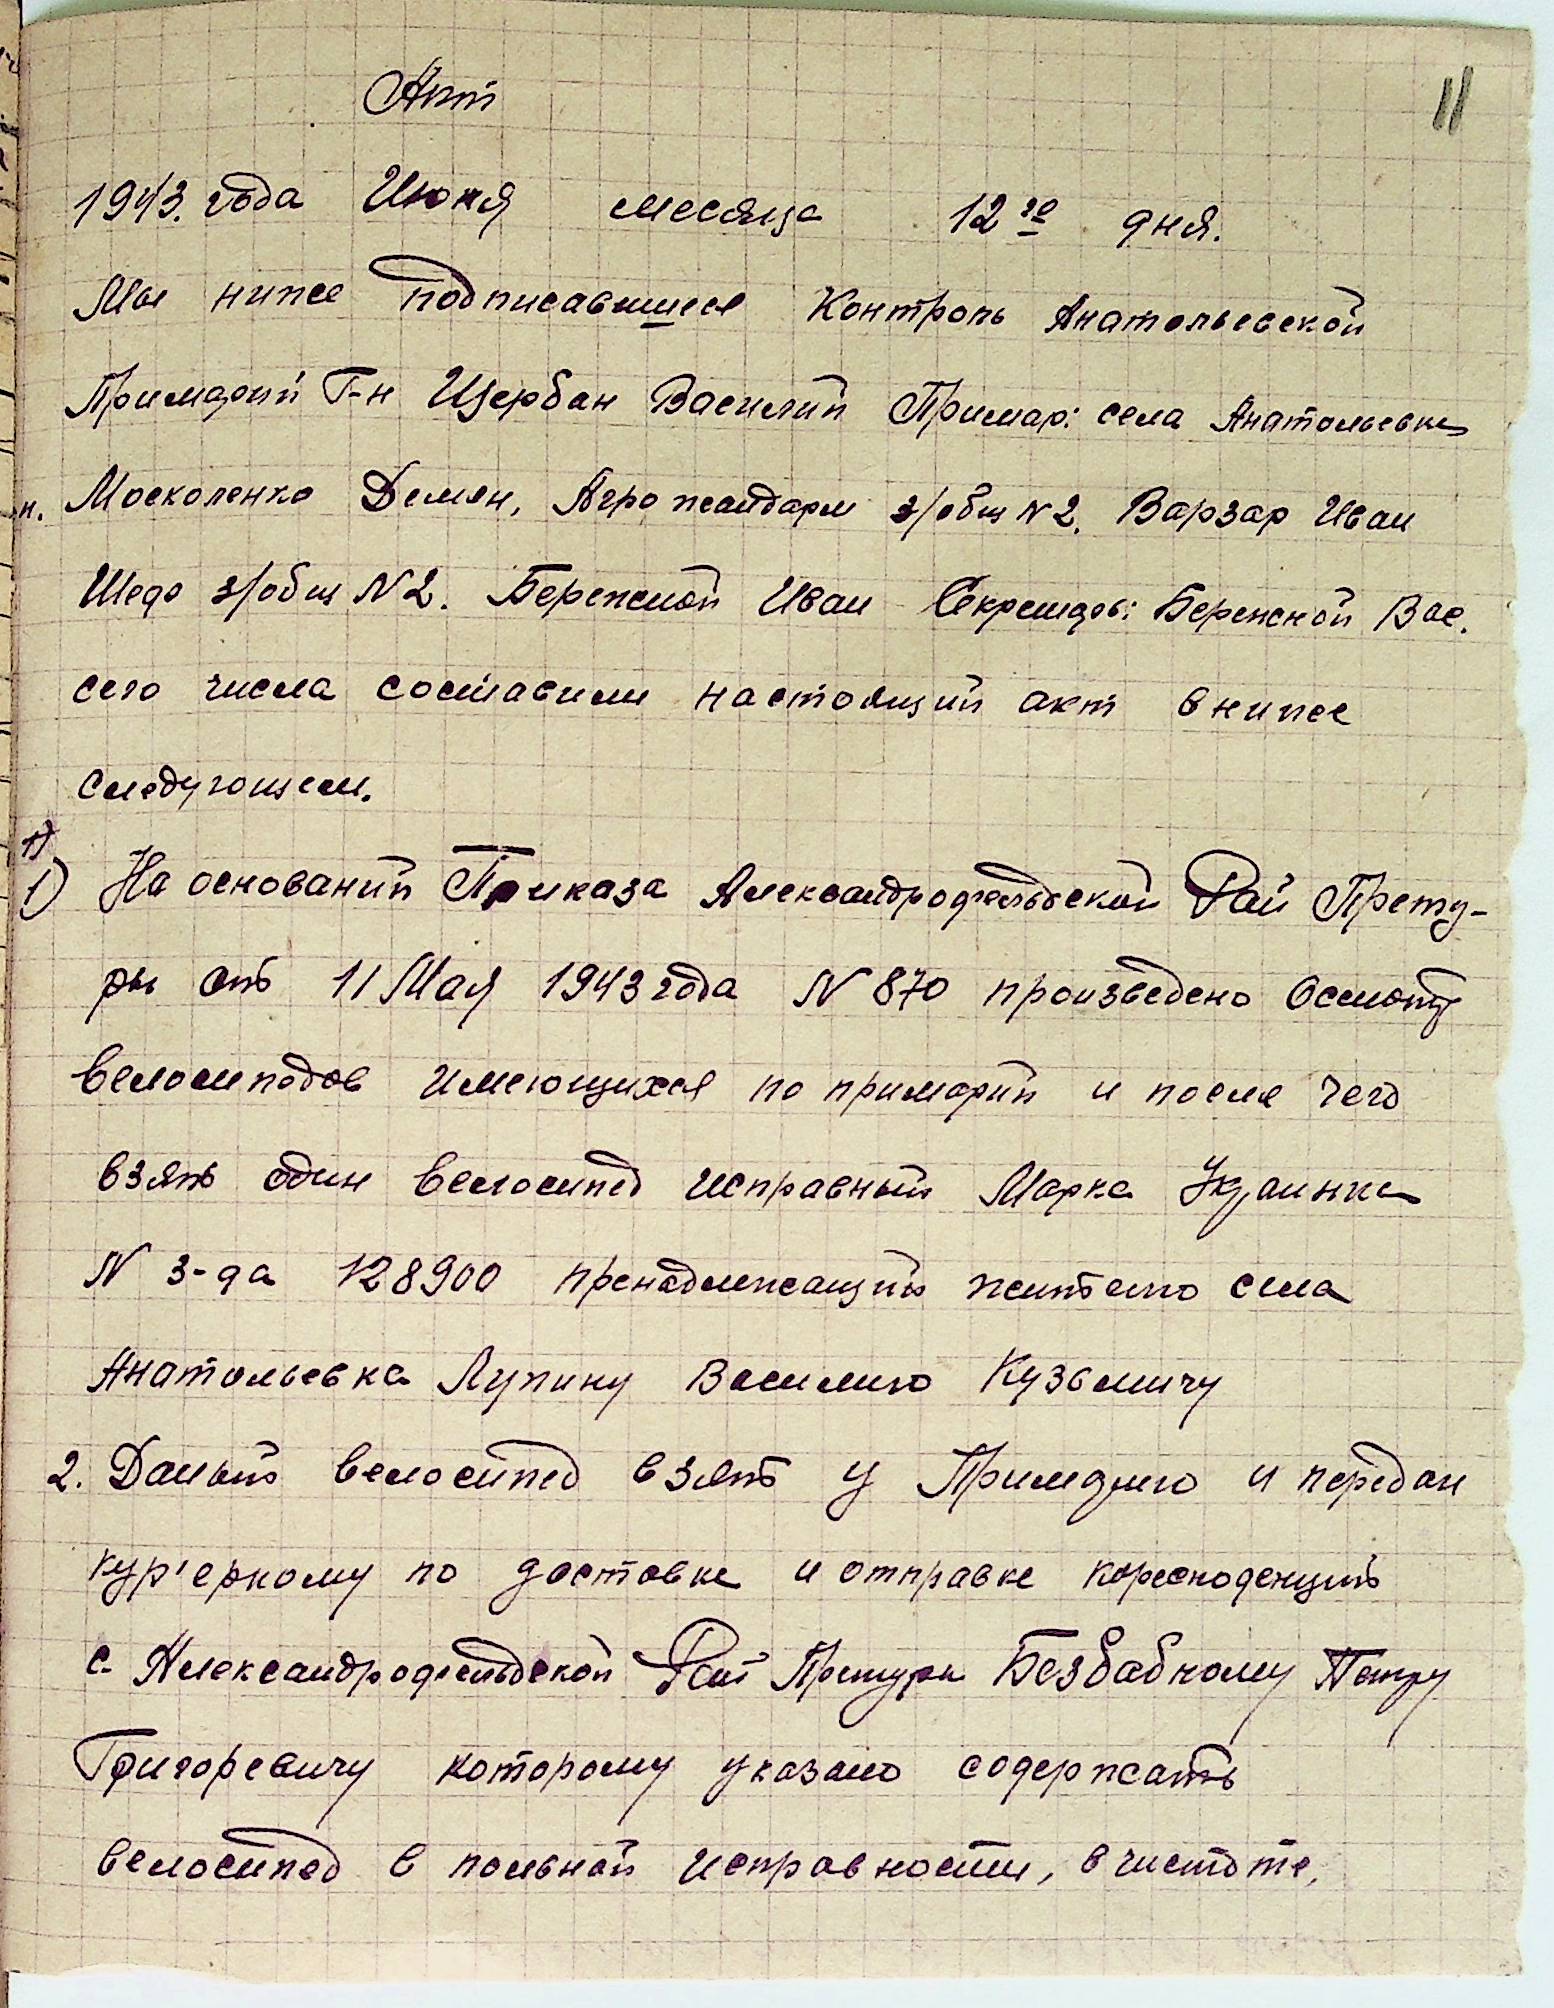 11
Акт
1943. года Июня месяца 12го дня.
Мы ниже подписавшиеся Контроль Анатольевской
Примарий Г-н Щербан Василий Примар: села Анатольевка
Москоленко Демян, Агро жандарм з/общ N2. Варзар Иван
Шеф з/общ N2. Бережной Иван Секретарь: Бережной Вас.
сего числа составили настоящий акт в ниже
следующем.
1) На оснований Приказа Александрофельдской Рай Прету-
ры от 11 Мая 1943 года N 870 произведено Осмотр
велосиподов имеющихся по примарий и после чего
взят один велосипед исправный Марка Украинка
N з-да 128900 пренадлежащий жителю села
Анатольевка Лупину Василию Кузьмичу
2. Даный велосипед взят у Примарию и передан
кур'ерному по доставке и отправке кореснoденций
с Александрофельдской Рай Претуры Безбабному Петру
Григоревичу которому указано содержать
велосипед в польной исправности, в чистоте,